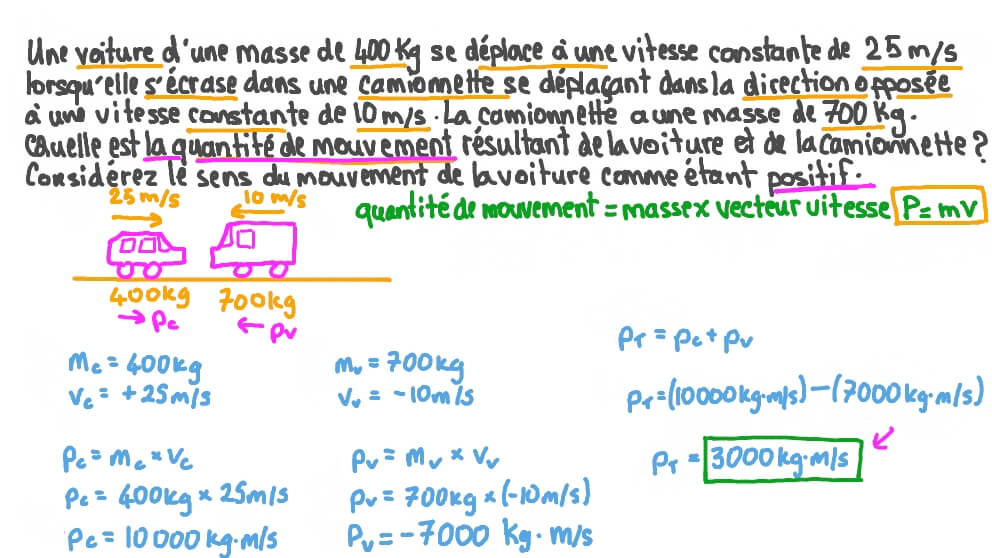 Une voiture d'une masse de 400 Kg se déplace à une vitesse constante de 25 m/s
lorsqu'elle s'écrase dans une camionnette se déplaçant dans la direction opposée
à une vitesse constante de 10 m/s. La camionnette a une masse de 700 Kg.
Quelle est la quantité de mouvement résultant de la voiture et de la camionnette ?
Considérez le sens du mouvement de la voiture comme étant positif.
25 m/s
10 m/s
quantité de mouvement = masse x vecteur vitesse P = mv
400kg
700kg
→ Pc
← Pv
mc = 400kg
vc = +25m/s
mv = 700kg
vv = -10m/s
PT = Pc + Pv
PT = (10000kg·m/s) - (7000kg·m/s)
PT = 3000kg·m/s
Pc = mc × vc
Pc = 400kg × 25m/s
Pc = 10 000 kg·m/s
Pv = mv × vv
Pv = 700kg × (-10m/s)
Pv = -7000 Kg·m/s